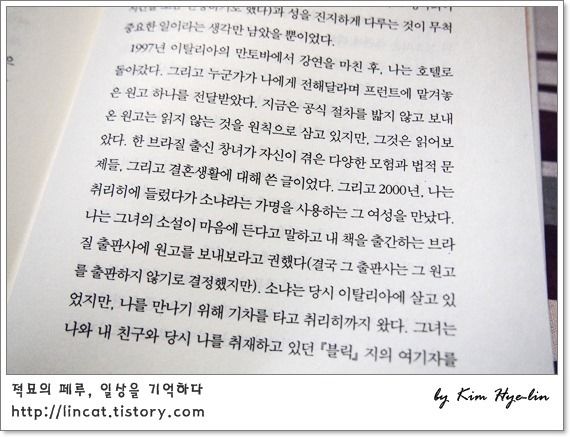 중요한 일이라는 생각만 남았을 뿐이었다.
1997년 이탈리아의 만토바에서 강연을 마친 후, 나는 호텔로
돌아갔다. 그리고 누군가가 나에게 전해달라며 프런트에 맡겨놓
은 원고 하나를 전달받았다. 지금은 공식 절차를 밟지 않고 보내
온 원고는 읽지 않는 것을 원칙으로 삼고 있지만, 그것은 읽어보
았다. 한 브라질 출신 창녀가 자신이 겪은 다양한 모험과 법적 문
제들, 그리고 결혼생활에 대해 쓴 글이었다. 그리고 2000년, 나는
취리히에 들렀다가 소냐라는 가명을 사용하는 그 여성을 만났다.
나는 그녀의 소설이 마음에 든다고 말하고 내 책을 출간하는 브라
질 출판사에 원고를 보내보라고 권했다(결국 그 출판사는 그 원고
를 출판하지 않기로 결정했지만). 소냐는 당시 이탈리아에 살고 있
었지만, 나를 만나기 위해 기차를 타고 취리히까지 왔다. 그녀는
나와 내 친구와 당시 나를 취재하고 있던 『블릭』 지의 여기자를
적묘의 페루, 일상을 기억하다
http://lincat.tistory.com
by Kim Hye-lin